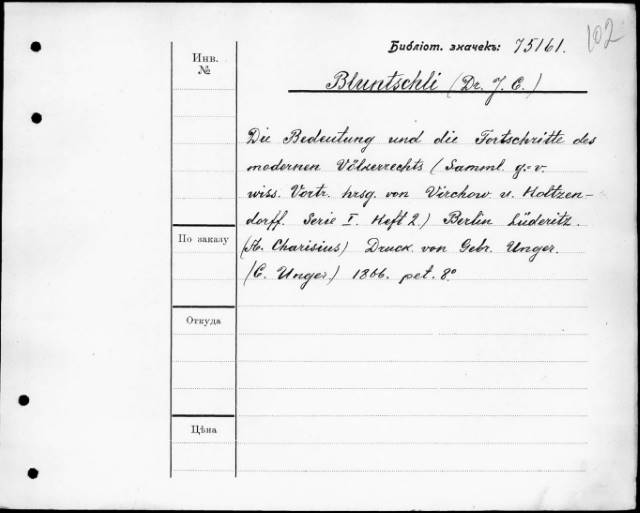 102
Библіот. значекъ: 75161.
Инв. №
Bluntschli (Dr. J. C.)
Die Bedeutung und die Fortschritte des
modernen Völkerrechts (Samml. g.-v.
wiss. Vortr. hrsg. von Virchow u. Holtzen-
dorff. Serie I. Heft 2.) Berlin Lüderitz.
(A. Charisius) Druck. von Gebr. Unger.
(C. Unger.) 1866. pet. 8°
По заказу
Откуда
Цѣна